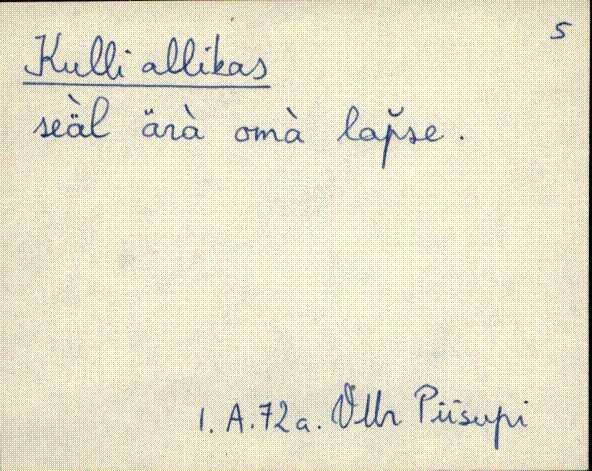 5
Kulli allikas
seäl ärà omà lap̆se.
I. A. 72a. Piisupi